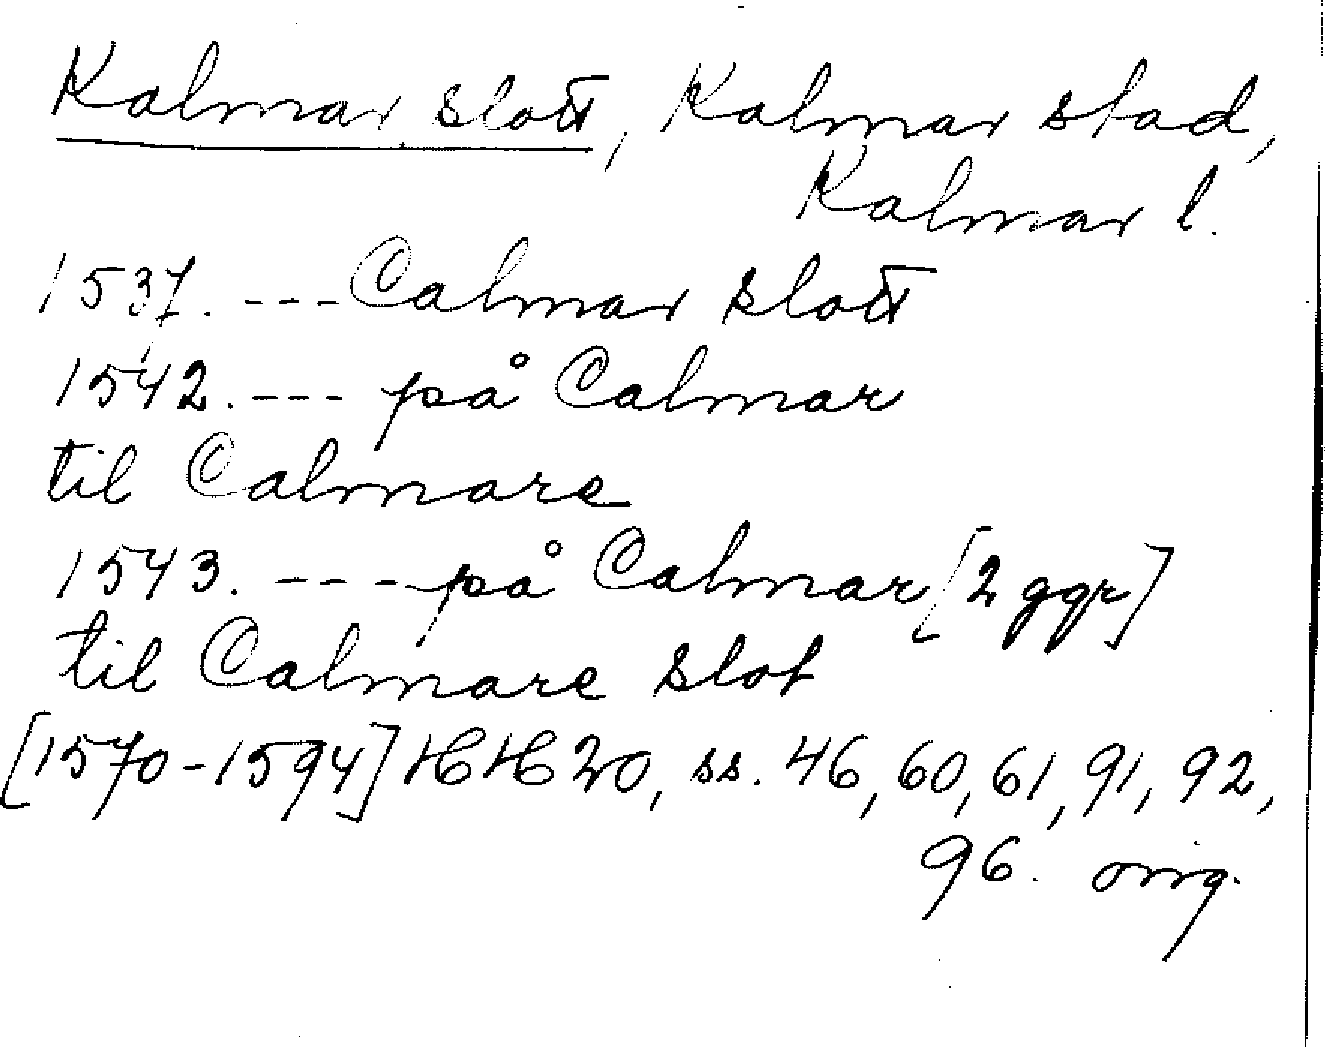 Kalmar slott, Kalmar stad,
Kalmar l.
1537. --- Calmar slott
1542. --- på Calmar
til Calmare
1543. --- på Calmar [2 ggr]
til Calmare slot
[1570-1594] HH 20, ss. 46, 60, 61, 91, 92,
96. orig.